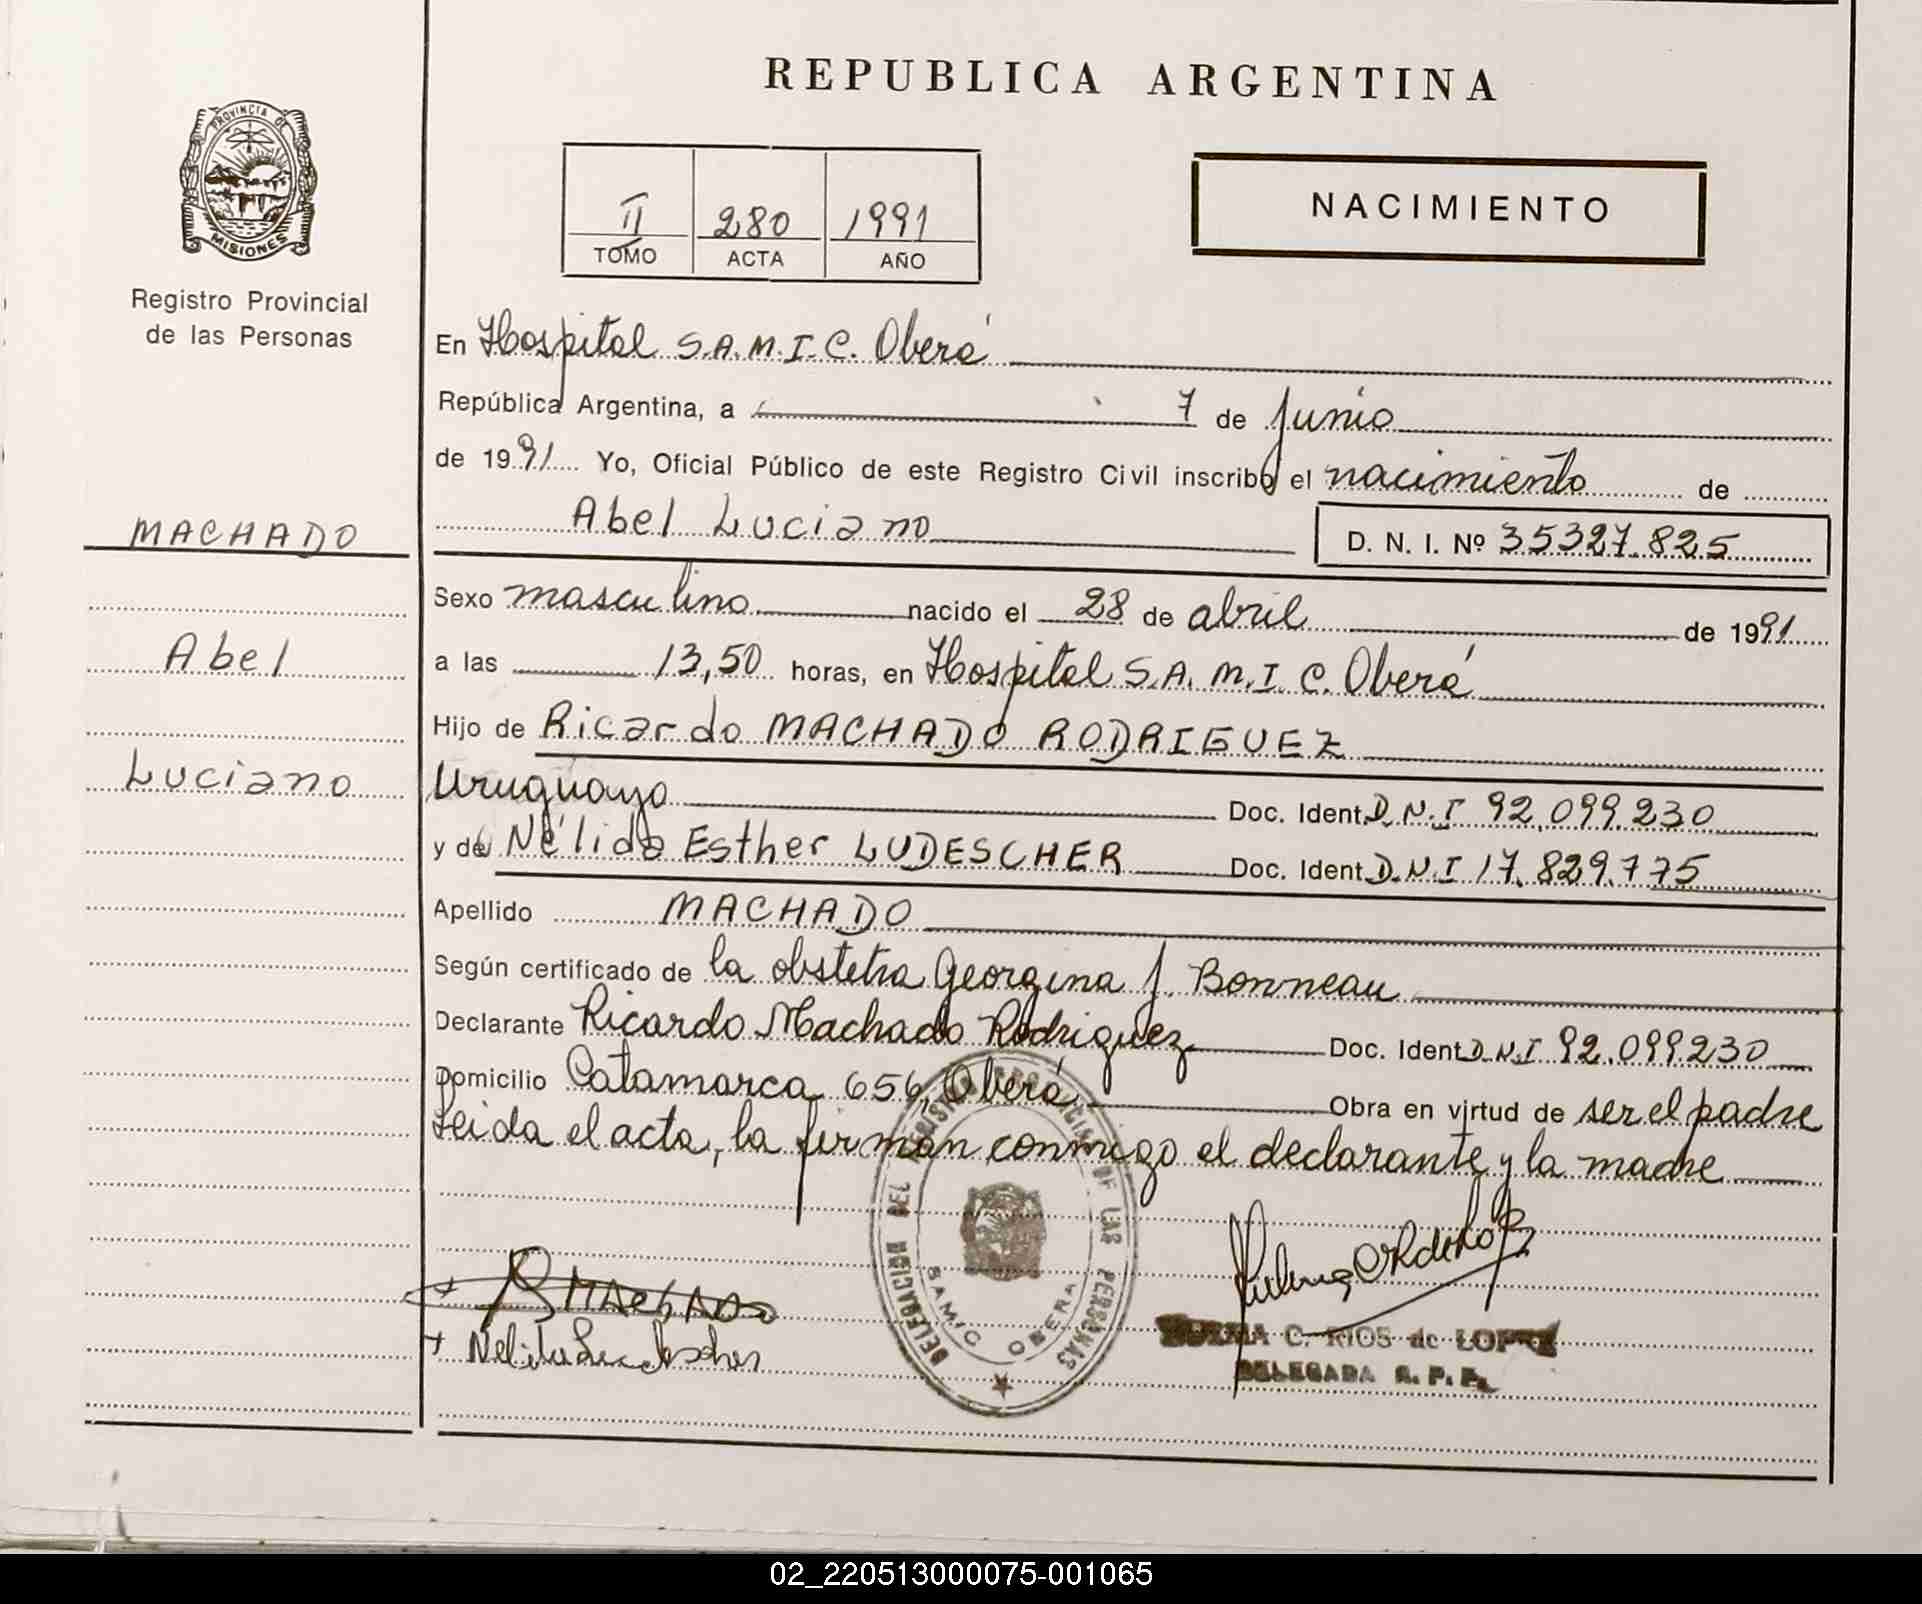 REPUBLICA ARGENTINA
PROVINCIA DE
MISIONES
Registro Provincial
de las Personas
II 280 1991
TOMO ACTA AÑO
NACIMIENTO
En Hospital S.A.M.I.C. Oberá
República Argentina, a 7 de junio
de 1991 Yo, Oficial Público de este Registro Civil inscribo el nacimiento de
MACHADO
Abel Luciano D. N. I. Nº 35327.825
Sexo masculino nacido el 28 de abril de 1991
Abel
a las 13,50 horas, en Hospital S.A.M.I.C. Oberá
Hijo de Ricardo MACHADO RODRIGUEZ
Luciano
Uruguayo Doc. Ident. D.N.I 92.099.230
y de Nélida Esther LUDESCHER Doc. Ident. D.N.I 17.829.775
Apellido MACHADO
Según certificado de la obstetra Georgina J. Bonneau
Declarante Ricardo Machado Rodriguez Doc. Ident D.N.I 92.099.230
Domicilio Catamarca 656, Oberá Obra en virtud de ser el padre
Leida el acta, la firman conmigo el declarante y la madre
DELEGACION DEL REGISTRO PROVINCIAL DE LAS PERSONAS
SAMIC OBERA
MACHADO
C. RIOS de LOPEZ
DELEGADA R. P. P.
02_220513000075-001065